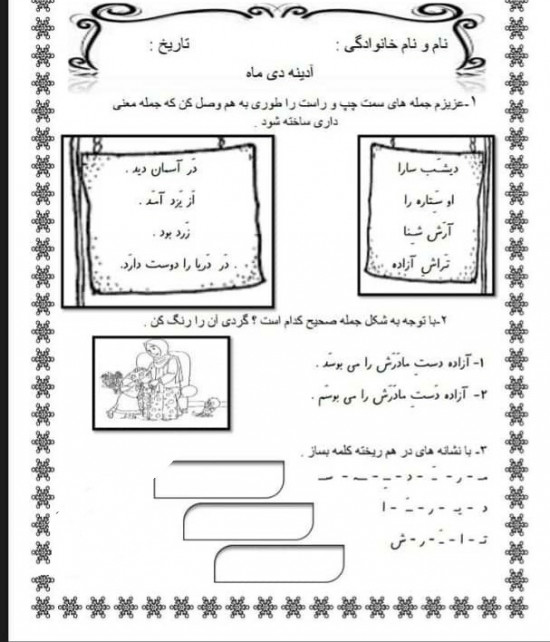 نام و نام خانوادگی : تاریخ :
آدینه دی ماه
۱-عزیزم جمله های سمت چپ و راست را طوری به هم وصل کن که جمله معنی
داری ساخته شود .
دیشَب سارا
او سِتاره را
آرَش شِنا
تَراشِ آزاده
دَر آسمان دید .
اَز یَزد آمَد .
زَرد بود .
دَر دَریا را دوست دارَد.
۲-با توجه به شکل جمله صحیح کدام است ؟ گردی آن را رنگ کن .
۱- آزاده دستِ مادَرَش را می بوسَد .
۲- آزاده دَستِ مادَرَش را می بوسَم .
۳- با نشانه های در هم ریخته کلمه بساز .
مـ - ر - ـَ - د - ـِ - ـه - سـ
د - یـ - ر - ـَ - ا
تـ - ا - ـَ - ر - ش